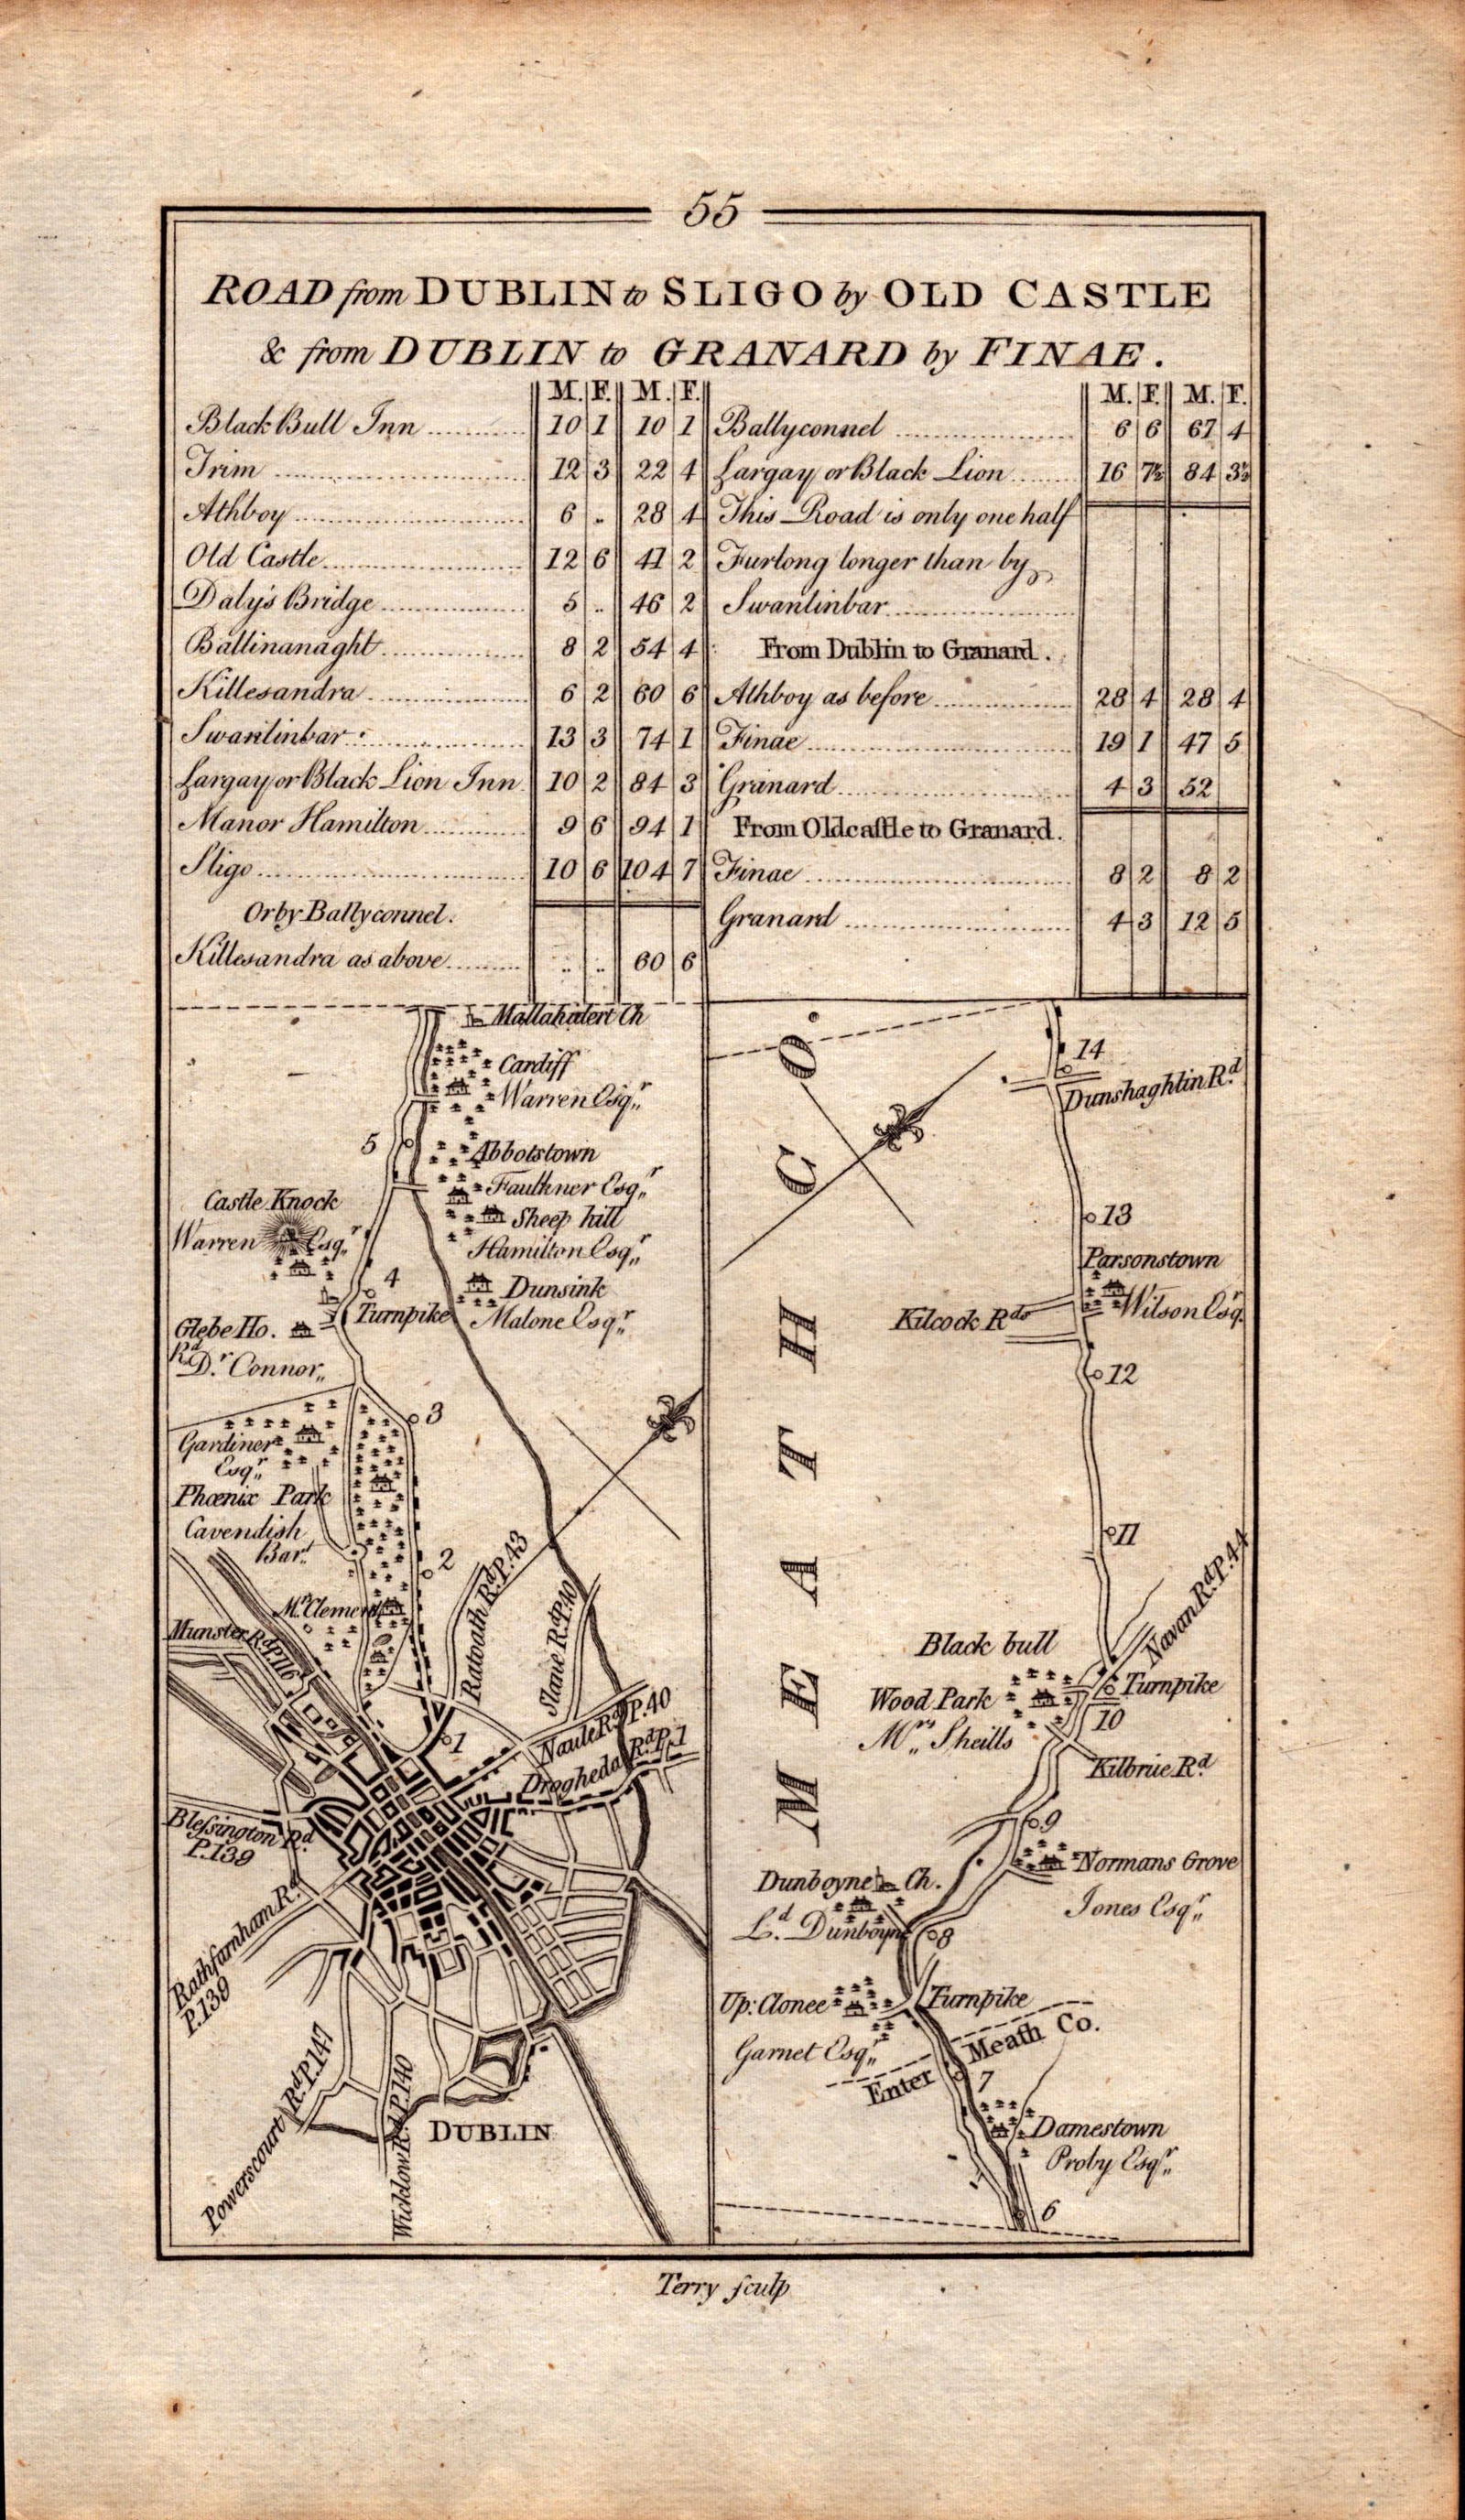 55
ROAD from DUBLIN to SLIGO by OLD CASTLE
& from DUBLIN to GRANARD by FINAE.
M. F. M. F.
Black Bull Inn 10 1 10 1
Trim 12 3 22 4
Athboy 6 .. 28 4
Old Castle 12 6 41 2
Daly's Bridge 5 .. 46 2
Ballinanaght 8 2 54 4
Killesandra 6 2 60 6
Swanlinbar 13 3 74 1
Largay or Black Lion Inn 10 2 84 3
Manor Hamilton 9 6 94 1
Sligo 10 6 104 7
Or by Ballyconnel.
Killesandra as above .. .. 60 6
M. F. M. F.
Ballyconnel 6 6 67 4
Largay or Black Lion 16 7½ 84 3½
This Road is only one half
Furlong longer than by
Swanlinbar
From Dublin to Granard.
Athboy as before 28 4 28 4
Finae 19 1 47 5
Granard 4 3 52
From Oldcaſtle to Granard.
Finae 8 2 8 2
Granard 4 3 12 5
Mallahedert Ch
Cardiff
Warren Esqr.
5
Abbotstown
Faulkner Esqr.
Castle Knock
Warren Esqr.
Sheep hill
Hamilton Esqr.
4
Dunsink
Malone Esqr.
Turnpike
Glebe Ho.
Rd. Dr. Connor
3
Gardiner
Esqr.
Phœnix Park
Cavendish
Bart.
2
Mr. Clement
Munster Rd P.116
Ratoath Rd P.43
Slane Rd P.40
1
Naule Rd P.40
Drogheda Rd P.1
Bleſsington Rd.
P.139
Rathfarnham Rd.
P.139
Powerscourt Rd P.147
Wicklow Rd P.140
DUBLIN
CO. MEATH
14
Dunshaghlin Rd.
13
Parsonstown
Wilson Esqr.
Kilcock Rds
12
11
Navan Rd P.44
Black bull
Wood Park
Turnpike
Mrs. Sheills
10
Kilbrue Rd.
9
Normans Grove
Jones Esqr.
Dunboyne Ch.
Ld. Dunboyne
8
Up: Clonee
Turnpike
Garnet Esqr.
Enter Meath Co.
7
Damestown
Proby Esqr.
6
Terry ſculp